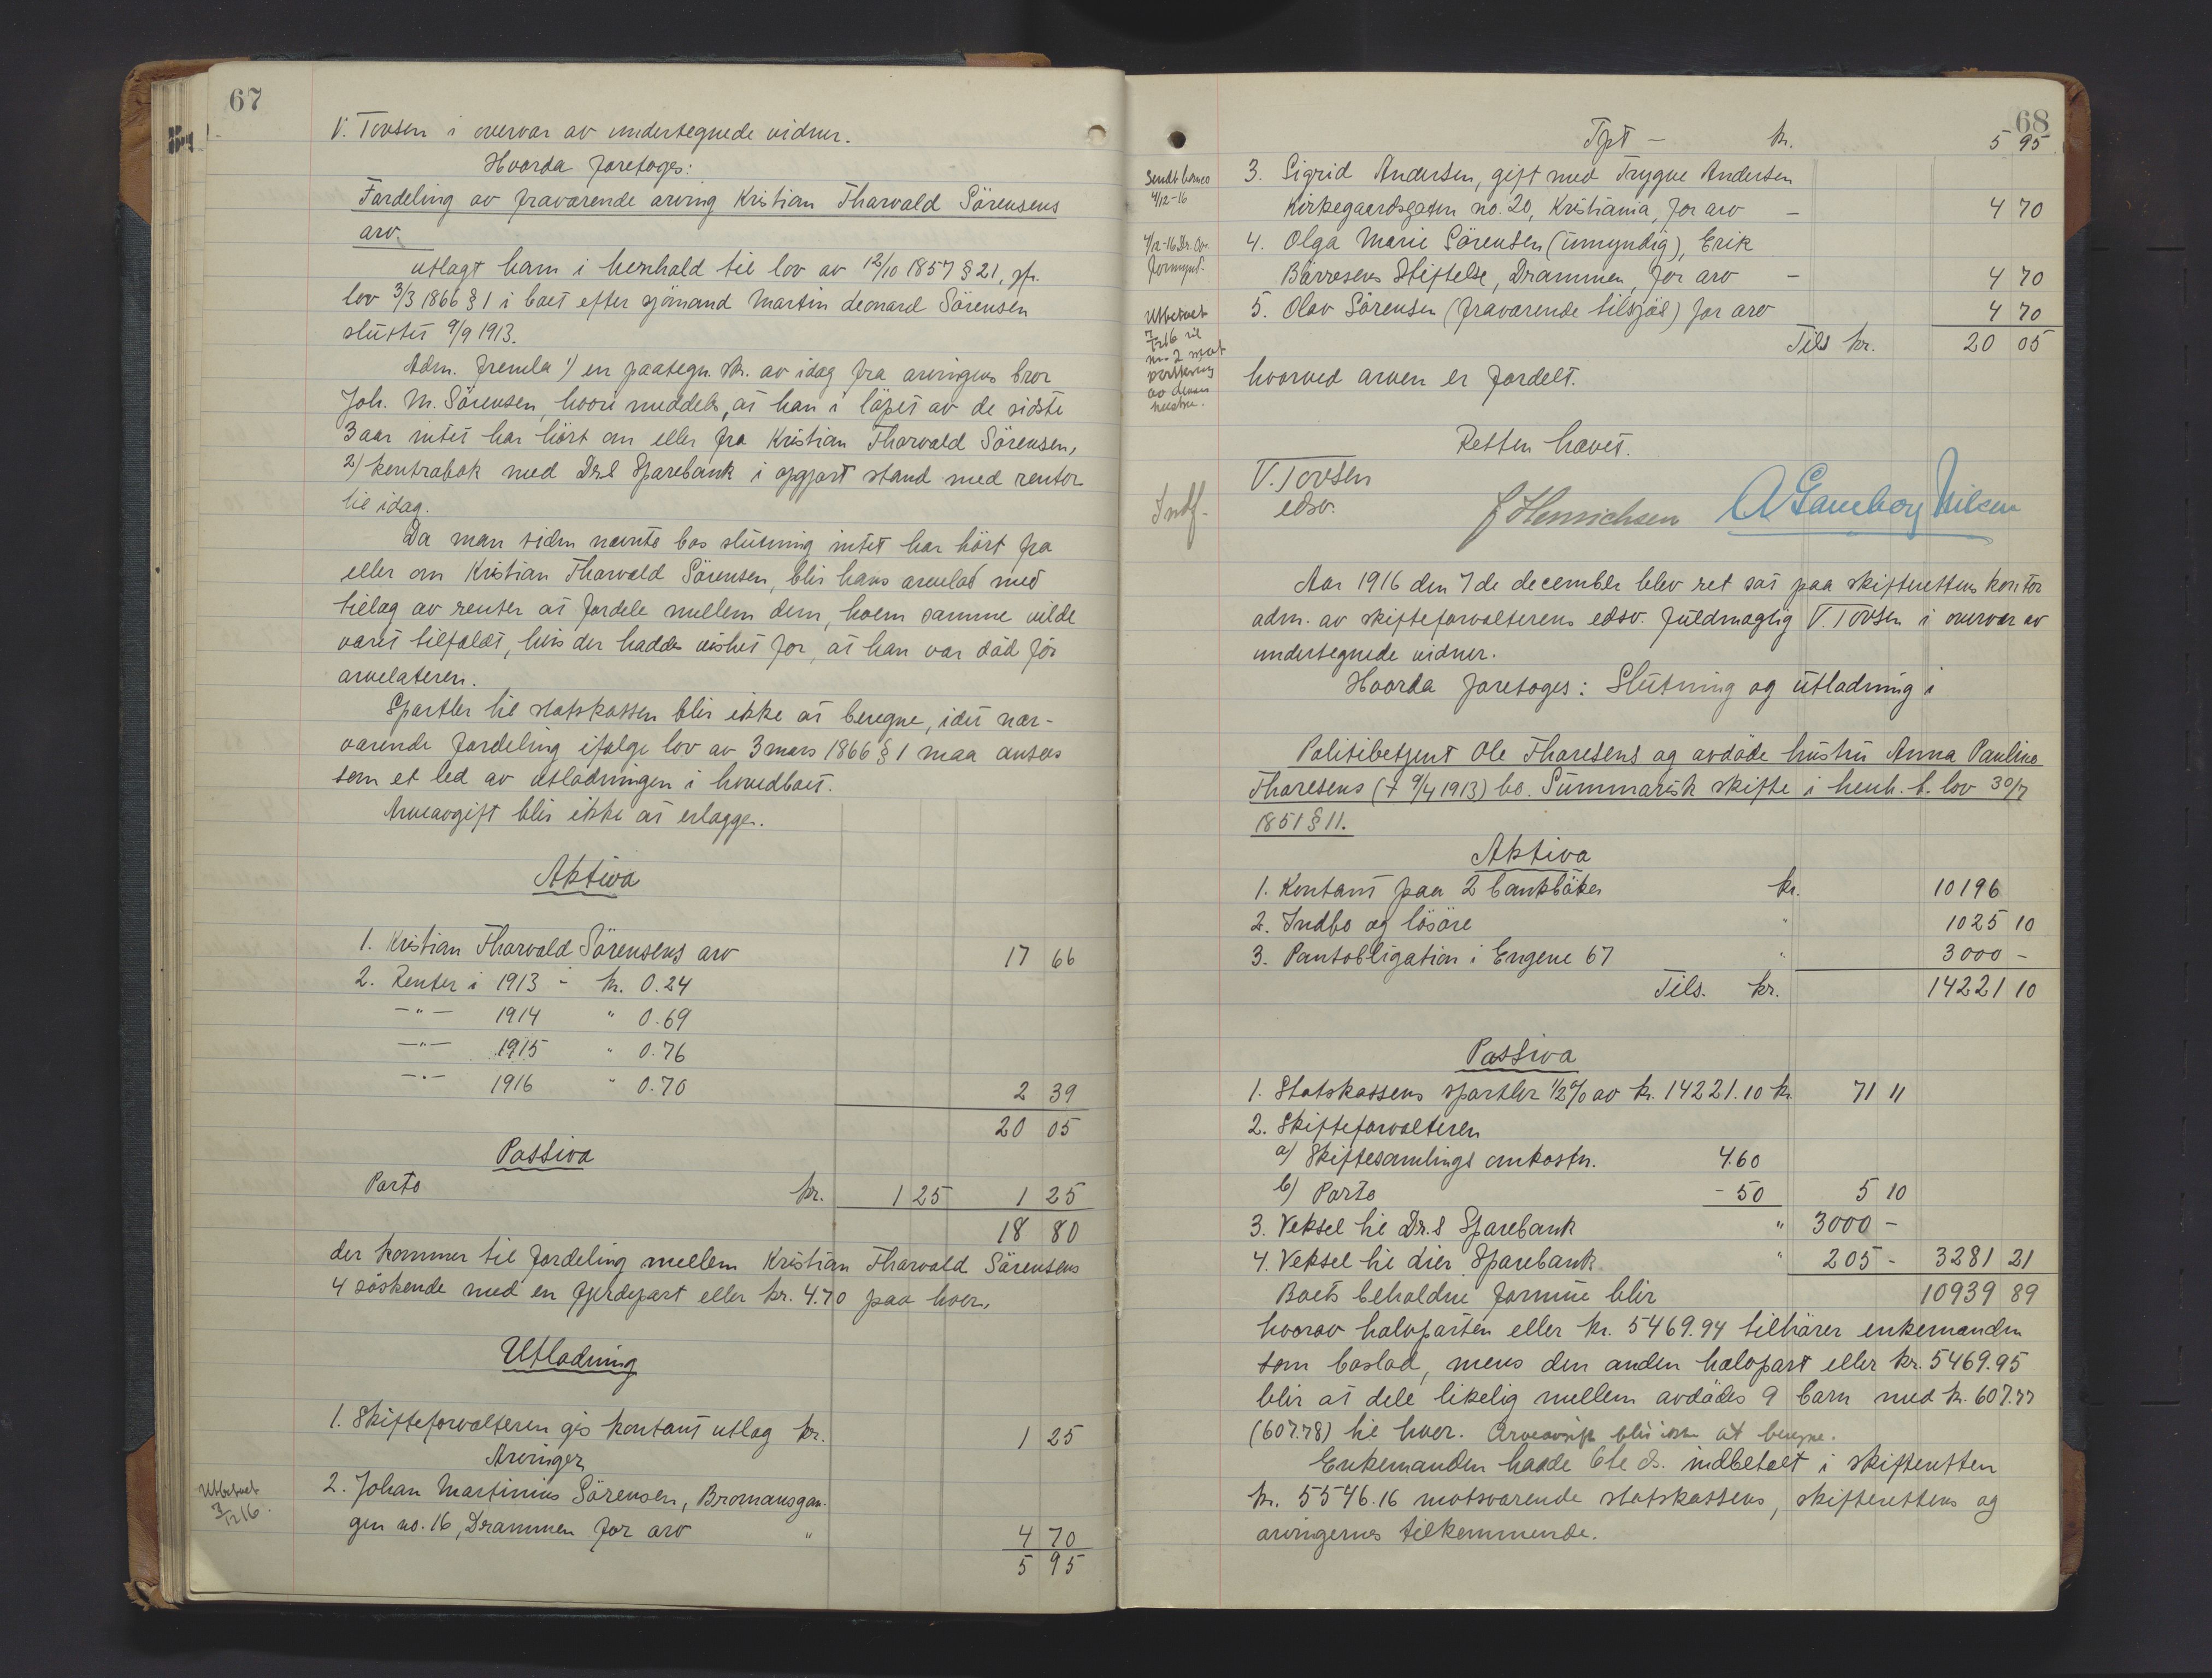 67
V. Tovsen i overvær av undertegnede vidner.
Hvorda foretoges:
Fordeling av fraværende arving Kristian Thorvald Sörensens
arv.
utlagt ham i henhold til lov av 12/10 1857 § 21, jfr.
lov 3/3 1866 § 1 i boet efter sjömand Martin Leonard Sörensen
sluttet 9/9 1913.
Adm. fremla 1) en paategn. skr. av idag fra arvingens bror
Joh. M. Sörensen, hvori meddeles, at han i löpet av de sidste
3 aar intet har hört om eller fra Kristian Thorvald Sörensen,
2) kontrabok med Dr.s Sparebank i opgjort stand med renter
til idag.
Da man siden nævnte bos slutning intet har hört fra
eller om Kristian Thorvald Sörensen, blir hans arvelod med
tillæg av renter at fordele mellem dem, hvem samme vilde
været tilfaldt, hvis der hadde vished for, at han var död för
arvelateren.
Sportler til statskassen blir ikke at beregne, idet nær-
værende fordeling ifölge lov av 3 mars 1866 § 1 maa ansees
som et led av utlodningen i hovedboet.
Arveavgift blir ikke at erlægge.
Aktiva
1. Kristian Thorvald Sörensens arv 17 66
2. Renter i 1913 - kr. 0.24
-"- 1914 " 0.69
-"- 1915 " 0.76
-"- 1916 " 0.70 2 39
20 05
Passiva
Porto kr. 1 25 1 25
18 80
der kommer til fordeling mellem Kristian Thorvald Sörensens
4 söskende med en fjerdepart eller kr. 4.70 paa hver.
Utlodning
1. Skifteforvalteren gis kontant utlag kr. 1 25
Arvinger
Utbetalt
7/12 16.
2. Johan Martinius Sörensen, Bromansgan-
gen no. 16, Drammen for arv " 4 70
5 95
68
Tpt - kr. 5 95
Sendt
4/12-16
3. Sigrid Andersen, gift med Trygve Andersen
Kirkegaardsgaten no. 20, Kristiania, for arv - 4 70
4/12-16 Dr. Ov.
formynd.
4. Olga Marie Sörensen (umyndig), Erik
Börresens Stiftelse, Drammen, for arv - 4 70
Utbetalt
7/12 16 til
nr. 2 mot
av denne
5. Olav Sörensen (fraværende tilsjös) for arv 4 70
Tils kr. 20 05
hvorved arven er fordelt.
Retten hævet.
V. Tovsen
edsv.
J Henrichsen A Gamborg Nilsen
Indf.
Aar 1916 den 7de december blev ret sat paa skifterettens kontor
adm. av skifteforvalterens edsv. fuldmægtig V. Tovsen i overvær av
undertegnede vidner.
Hvorda foretoges: Slutning og utlodning i
Politibetjent Ole Thoresens og avdöde hustru Anna Pauline
Thoresens († 9/4 1913) bo. Summarisk skifte i henh. t. lov 30/7
1851 § 11.
Aktiva
1. Kontant paa 2 bankböker kr. 10196
2. Indbo og lösöre " 1025 10
3. Pantobligation i Engene 67 " 3000 -
Tils. kr. 14221 10
Passiva
1. Statskassens sportler 1/2 % av kr. 14221.10 kr. 71 11
2. Skifteforvalteren
a) Skiftesamlings omkostn. 4.60
b) Porto - 50 5 10
3. Veksel til Dr.s Sparebank " 3000 -
4. Veksel til Lier Sparebank " 205 - 3281 21
Boets beholdne formue blir 10939 89
hvorav halvparten eller kr. 5469.94 tilhörer enkemanden
som boslod, mens den anden halvpart eller kr. 5469.95
blir at dele likelig mellem avdödes 9 barn med kr. 607.77
(607.78) til hver. Arveavgift blir ikke at beregne.
Enkemanden havde 6te ds. indbetalt i skifteretten
kr. 5546.16 motsvarende statskassens, skifterettens og
arvingernes tilkommende.